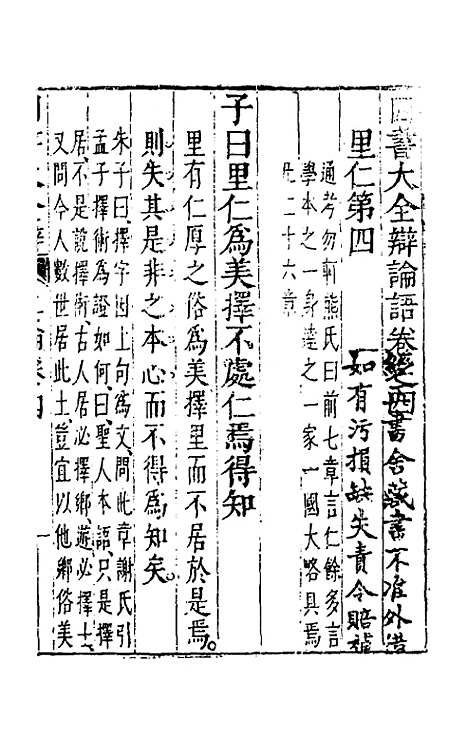 四書大全辯論語卷之四
書舍藏書不准外借
如有污損缺失責令賠補
里仁第四
通考勿軒熊氏曰前七章言仁餘多言
學本之一身達之一家一國大略具焉
凡二十六章
子曰里仁為美擇不處仁焉得知
里有仁厚之俗為美擇里而不居於是焉
則失其是非之本心而不得為知矣
朱子曰擇字因上句為文問此章謝氏引
孟子擇術為證如何曰聖人本語只是擇
居不是說擇術古人居必擇鄉遊必擇士
又問今人數世居此土豈宜以他鄉俗美